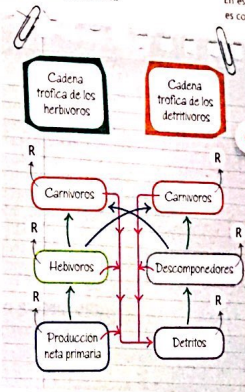 Cadena
trofica de los
herbivoros
Cadena
trofica de los
detritivoros
R
R
Carnivoros
Carnivoros
R
R
Hebivoros
Descomponedores
R
R
Produccion
neta primaria
Detritos